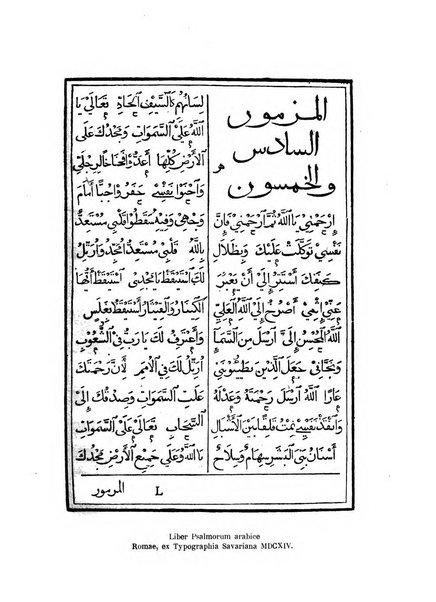 المزمور
السادس
والخمسون
إرحمني يا الله ثم ارحمني فإن
نفسي توكلت عليك وبظلال
كنفك استتر إلى أن يعبر
عني إثمي أصرخ إلى الله العلي
الله المحسن إلي أرسل من السما
ونجاني جعل الذين يطيونني
عارا الله أرسل رحمته وعدله
وانقذ نفسي من
أسنان بني البشر سهام وسلاح
لسانهم كالسيف الحاد تعالي يا
الله على السموات ومجدك على
الأرض كلها أعدوا فخاخا لرجلي
واحنوا نفسي حفروا جبا أمام
وجهي وفيه سقطوا قلبي مستعد
يالله قلبي مستعد أمجد وأرتل
لك استيقظ يا مجدي استيقظ أيها
الكينار والقيثار أستيقظ بغلس
وأعترف لك يا رب في الشعوب
أرتل لك في الأمم لان رحمتك
علت السموات وصدقك إلى
السحاب تعالي على السموات
يا الله وعلى جميع الأرض مجدك
L المزمور
Liber Psalmorum arabice
Romae, ex Typographia Savariana MDCXIV.